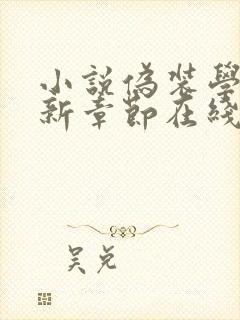 小說偽裝學
新章節在綫
吴兑